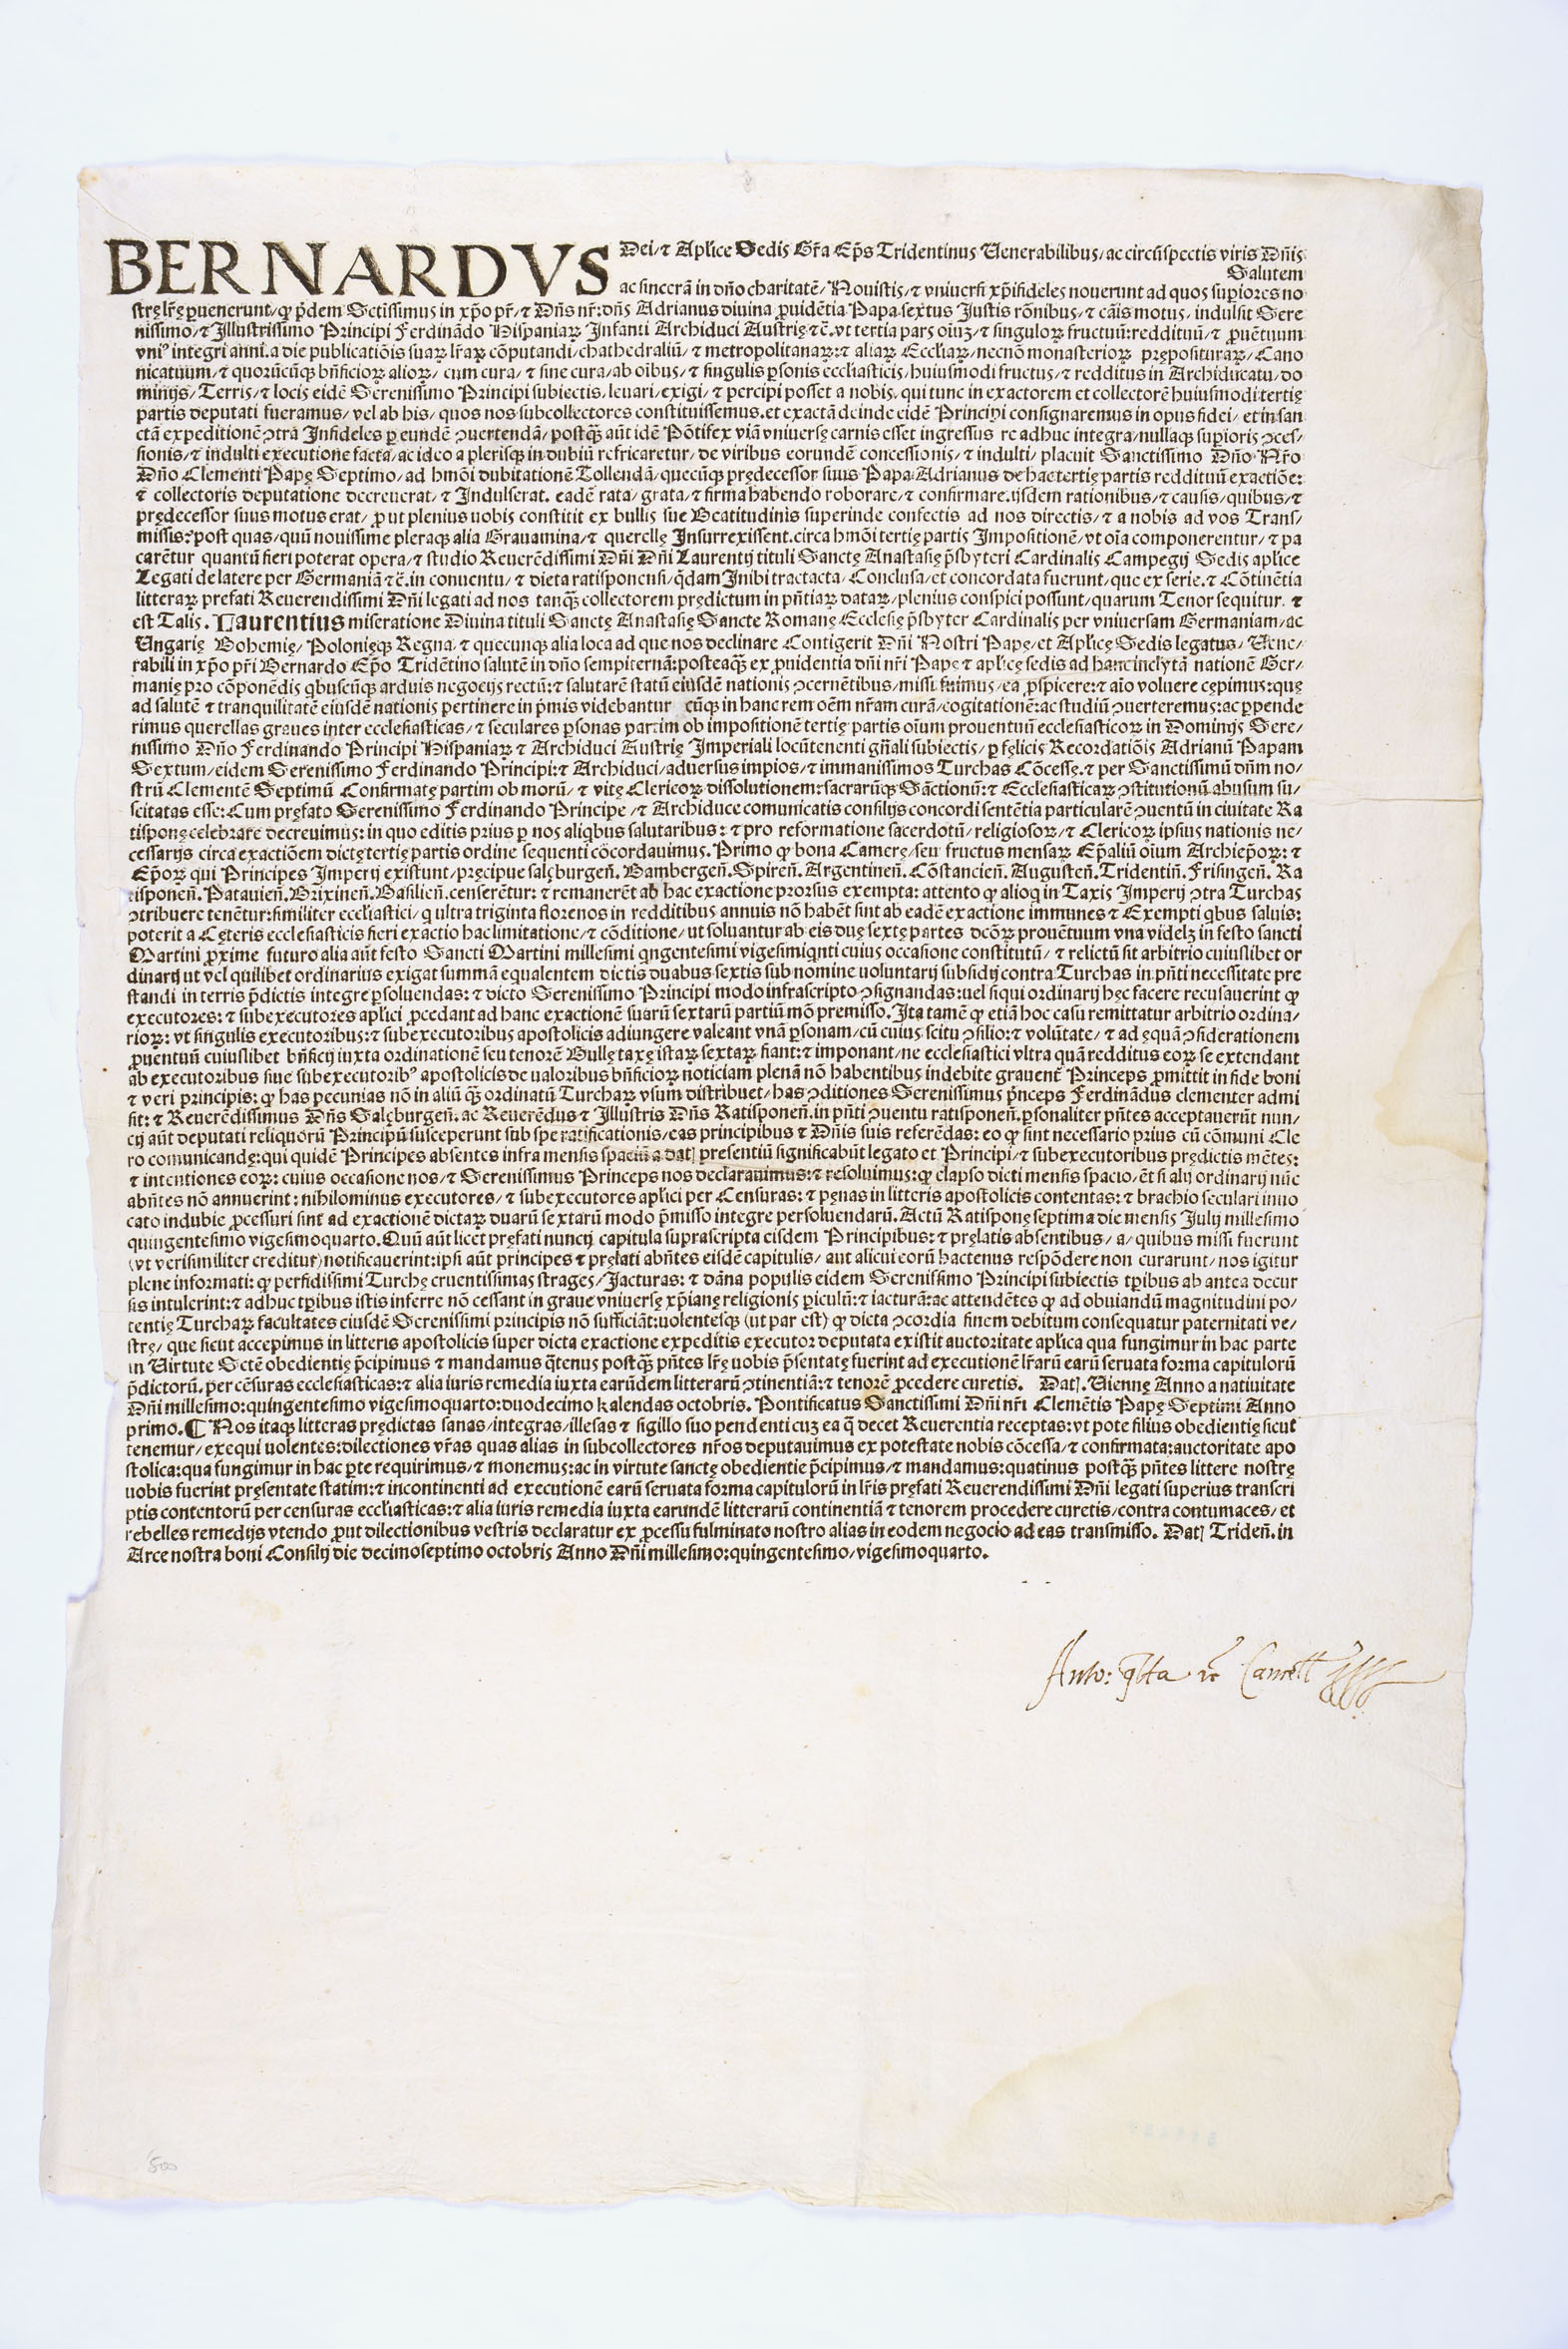 BERNARDVS Dei/ ⁊ Aplice Sedis Gr̃a Ep̃s Tridentinus Venerabilibus/ ac circũspectis viris Dñis
Salutem
ac sincerã in dño charitatẽ/ Nouistis/ ⁊ vniuersi xp̃ifideles nouerunt ad quos supiores no
stre̜ lr̃e̜ ꝑuenerunt/ ꝙ p̃dem Sctissimus in xp̃o pr̃/ ⁊ Dñs nr̃: dñs Adrianus diuina ꝓuidẽtia Papa sextus Justis rõnibus/ ⁊ cãis motus/ indulsit Sere
nissimo/ ⁊ Illustrissimo Principi Ferdinãdo Hispaniaꝝ Infanti Archiduci Austrie̜ ⁊c̃. vt tertia pars oiuꝫ/ ⁊ singuloꝝ fructuũ: reddituũ/ ⁊ ꝓuẽtuum
vniꝰ integri anni. a die publicatiõis suaꝝ lr̃aꝝ cõputandi/ chathedraliũ/ ⁊ metropolitanaꝝ: ⁊ aliaꝝ Eccliaꝝ/ necnõ monasterioꝝ pre̜posituraꝝ/ Cano
nicatuum/ ⁊ quorũcũqꝫ bñficioꝝ alioꝝ/ cum cura/ ⁊ sine cura/ ab oibus/ ⁊ singulis ꝑsonis eccliasticis/ huiusmodi fructus/ ⁊ redditus in Archiducatu/ do
minijs/ Terris/ ⁊ locis eidẽ Serenissimo Principi subiectis, leuari/ exigi/ ⁊ percipi posset a nobis/ qui tunc in exactorem et collectorẽ huiusmodi tertie̜
partis deputati fueramus/ vel ab his/ quos nos subcollectores constituissemus. et exactã deinde eidẽ Principi consignaremus in opus fidei/ et in san
ctã expeditionẽ ↄtra Infideles ꝑ eundẽ ↄuertendã/ postqꝫ̃ aũt idẽ Põtifex viã vniuerse̜ carnis esset ingressus re adhuc integra/ nullaqꝫ supioris ↄces/
sionis/ ⁊ indulti executione facta/ ac ideo a plerisqꝫ in dubiũ refricaretur/ de viribus eorundẽ concessionis/ ⁊ indulti/ placuit Sanctissimo Dño Nr̃o
Dño Clementi Pape̜ Septimo/ ad hmõi dubitationẽ Tollendã/ quecũqꝫ pre̜decessor suus Papa Adrianus de hac tertie̜ partis reddituũ exactiõe:
⁊ collectoris deputatione decreuerat/ ⁊ Indulserat. eadẽ rata/ grata/ ⁊ firma habendo roborare/ ⁊ confirmare. ijsdem rationibus/ ⁊ causis/ quibus/ ⁊
pre̜decessor suus motus erat/ ꝓut plenius uobis constitit ex bullis sue Beatitudinis superinde confectis ad nos directis/ ⁊ a nobis ad vos Trans/
missis: post quas/ quũ nouissime pleraqꝫ alia Grauamina/ ⁊ querelle̜ Insurrexissent. circa hmõi tertie̜ partis Impositionẽ/ vt oia componerentur/ ⁊ pa
carẽtur quantũ fieri poterat opera/ ⁊ studio Reuerẽdissimi Dñi Dñi Laurentij tituli Sancte̜ Anastasie̜ p̃sbyteri Cardinalis Campegij Sedis aplice
Legati de latere per Germaniã ⁊c̃. in conuentu/ ⁊ dieta ratisponensi/ q̃dam Inibi tractacta/ Conclusa/ et concordata fuerunt/ que ex serie. ⁊ Cõtinẽtia
litteraꝝ prefati Reuerendissimi Dñi legati ad nos tanqꝫ̃ collectorem pre̜dictum in pñtiaꝝ dataꝝ/ plenius conspici possunt/ quarum Tenor sequitur. ⁊
est Talis. Laurentius miseratione Diuina tituli Sancte̜ Anastasie̜ Sancte Romane̜ Ecclesie̜ p̃sbyter Cardinalis per vniuersam Germaniam/ ac
Vngarie̜ Bohemie̜/ Polonie̜qꝫ Regna/ ⁊ quecunqꝫ alia loca ad que nos declinare Contigerit Dñi Nostri Pape̜/ et Aplice̜ Sedis legatus/ Vene/
rabili in xp̃o pr̃i Bernardo Ep̃o Tridẽtino salutẽ in dño sempiternã: posteaqꝫ̃ ex ꝓuidentia dñi nr̃i Pape̜ ⁊ aplice̜ sedis ad hanc inclytã nationẽ Ger/
manie̜ pro cõponẽdis qbuscũqꝫ arduis negocijs rectũ: ⁊ salutarẽ statũ eiusdẽ nationis ↄcernẽtibus/ missi fuimus/ ea ꝑspicere: ⁊ aio voluere ce̜pimus: que̜
ad salutẽ ⁊ tranquilitatẽ eiusdẽ nationis pertinere in p̃mis videbantur cũqꝫ in hanc rem oẽm nr̃am curã/ cogitationẽ: ac studiũ ↄuerteremus: ac ꝑpende
rimus querellas graues inter ecclesiasticas/ ⁊ seculares ꝑsonas partim ob impositionẽ tertie̜ partis oium prouentuũ ecclesiasticoꝝ in Dominijs Sere/
nissimo Dño Ferdinando Principi Hispaniaꝝ ⁊ Archiduci Austrie̜ Imperiali locũtenenti gñali subiectis/ ꝑ fe̜licis Recordatiõis Adrianũ Papam
Sextum/ eidem Serenissimo Ferdinando Principi: ⁊ Archiduci/ aduersus impios/ ⁊ immanissimos Turchas Cõcesse̜. ⁊ per Sanctissimũ dñm no/
strũ Clementẽ Septimũ Confirmate̜ partim ob morũ/ ⁊ vite̜ Clericoꝝ dissolutionem: sacrarũqꝫ Sãctionũ: ⁊ Ecclesiasticaꝝ ↄstitutionũ abusum su/
scitatas esse: Cum pre̜fato Serenissimo Ferdinando Principe/ ⁊ Archiduce comunicatis consilijs concordi sentẽtia particularẽ ↄuentũ in ciuitate Ra
tispone̜ celebrare decreuimus: in quo editis prius ꝑ nos aliqbus salutaribus: ⁊ pro reformatione sacerdotũ/ religiosoꝝ/ ⁊ Clericoꝝ ipsius nationis ne/
cessarijs circa exactiõem dicte̜ tertie̜ partis ordine sequenti cõcordauimus. Primo ꝙ bona Camere̜/ seu fructus mensaꝝ Ep̃aliũ oium Archiep̃oꝝ: ⁊
Ep̃oꝝ qui Principes Imperij existunt/ pre̜cipue salc̜burgeñ. Bambergeñ. Spireñ. Argentineñ. Cõstancieñ. Augusteñ. Tridentiñ. Frisingeñ. Ra
tisponeñ. Patauieñ. Brixineñ. Basilieñ. censerẽtur: ⁊ remanerẽt ab hac exactione prorsus exempta: attento ꝙ alioq in Taxis Imperij ↄtra Turchas
ↄtribuere tenẽtur: similiter eccliastici/ q ultra triginta florenos in redditibus annuis nõ habẽt sint ab eadẽ exactione immunes ⁊ Exempti qbus saluis:
poterit a Ce̜teris ecclesiasticis fieri exactio hac limitatione/ ⁊ cõditione/ ut soluantur ab eis due̜ sexte̜ partes dcõꝝ prouẽtuum vna videlꝫ in festo sancti
Martini ꝓxime futuro alia aũt festo Sancti Martini millesimi qngentesimi vigesimiqnti cuius occasione constitutũ/ ⁊ relictũ sit arbitrio cuiuslibet or
dinarij ut vel quilibet ordinarius exigat summã equalentem dictis duabus sextis sub nomine uoluntarij subsidij contra Turchas in pñti necessitate pre
standi in terris p̃dictis integre ꝑsoluendas: ⁊ dicto Serenissimo Principi modo infrascripto ↄsignandas: uel si qui ordinarij he̜c facere recusauerint ꝙ
executores: ⁊ subexecutores aplici ꝓcedant ad hanc exactionẽ suarũ sextarũ partiũ mõ premisso. Ita tamẽ ꝙ etiã hoc casu remittatur arbitrio ordina/
rioꝝ: vt singulis executoribus: ⁊ subexecutoribus apostolicis adiungere valeant vnã ꝑsonam/ cũ cuius scitu ↄsilio: ⁊ volũtate/ ⁊ ad e̜quã ↄsiderationem
ꝓuentuũ cuiuslibet bñficij iuxta ordinationẽ seu tenorẽ Bulle̜ taxe̜ istaꝝ sextaꝝ fiant: ⁊ imponant/ ne ecclesiastici vltra quã redditus eoꝝ se extendant
ab executoribus siue subexecutoribꝰ apostolicis de ualoribus bñficioꝝ noticiam plenã nõ habentibus indebite grauent̃ Princeps ꝓmittit in fide boni
⁊ veri principis: ꝙ has pecunias nõ in aliũ qꝫ̃ ordinatũ Turchaꝝ vsum distribuet/ has ↄditiones Serenissimus p̃nceps Ferdinãdus clementer admi
sit: ⁊ Reuerẽdissimus Dñs Salc̜burgeñ. ac Reuerẽdus ⁊ Illustris Dñs Ratisponeñ. in pñti ↄuentu ratisponeñ. ꝑsonaliter pñtes acceptauerũt nun/
cij aũt deputati reliquorũ Principũ susceperunt sub spe ratificationis/ eas principibus ⁊ Dñis suis referẽdas: eo ꝙ sint necessario prius cũ cõmuni Cle
ro comunicande̜: qui quidẽ Principes absentes infra mensis spaciũ a dat̃ presentiũ significabũt legato et Principi/ ⁊ subexecutoribus pre̜dictis mẽtes:
⁊ intentiones eoꝝ: cuius occasione nos/ ⁊ Serenissimus Princeps nos declarauimus: ⁊ resoluimus: ꝙ elapso dicti mensis spacio/ ẽt si alij ordinarij nũc
abñtes nõ annuerint: nihilominus executores/ ⁊ subexecutores aplici per Censuras: ⁊ pe̜nas in litteris apostolicis contentas: ⁊ brachio seculari inuo
cato indubie ꝓcessuri sint ad exactionẽ dictaꝝ duarũ sextarũ modo p̃misso integre persoluendarũ. Actũ Ratispone̜ septima die mensis Julij millesimo
quingentesimo vigesimoquarto. Quũ aũt licet pre̜fati nuncij capitula suprascripta eisdem Principibus: ⁊ pre̜latis absentibus/ a/ quibus missi fuerunt
(vt verisimiliter creditur) notificauerint: ipsi aũt principes ⁊ pre̜lati abñtes eisdẽ capitulis/ aut alicui eorũ hactenus respõdere non curarunt/ nos igitur
plene informati: ꝙ perfidissimi Turche̜ cruentissimas strages/ Jacturas: ⁊ dãna populis eidem Serenissimo Principi subiectis tp̃ibus ab antea decur
sis intulerint: ⁊ adhuc tp̃ibus istis inferre nõ cessant in graue vniuerse̜ xp̃iane̜ religionis ꝑiculũ: ⁊ iacturã: ac attendẽtes ꝙ ad obuiandũ magnitudini po/
tentie̜ Turchaꝝ facultates eiusdẽ Serenissimi principis nõ sufficiãt: uolentesqꝫ (ut par est) ꝙ dicta ↄcordia finem debitum consequatur paternitati ve/
stre̜/ que sicut accepimus in litteris apostolicis super dicta exactione expeditis executor deputata existit auctoritate aplica qua fungimur in hac parte
in Virtute Sctẽ obedientie̜ p̃cipimus ⁊ mandamus q̃tenus postqꝫ̃ pñtes lr̃e̜ uobis p̃sentate̜ fuerint ad executionẽ lr̃arũ earũ seruata forma capitulorũ
p̃dictorũ. per cẽsuras ecclesiasticas: ⁊ alia iuris remedia iuxta earũdem litterarũ ↄtinentiã: ⁊ tenorẽ ꝓcedere curetis. Dat̃. Vienne̜ Anno a natiuitate
Dñi millesimo: quingentesimo vigesimoquarto: duodecimo kalendas octobris. Pontificatus Sanctissimi Dñi nr̃i Clemẽtis Pape̜ Septimi Anno
primo. ¶ Nos itaqꝫ litteras pre̜dictas sanas/ integras/ illesas ⁊ sigillo suo pendenti cuꝫ ea q̃ decet Reuerentia receptas: vt pote filius obedientie̜ sicut
tenemur/ exequi uolentes: dilectiones vr̃as quas alias in subcollectores nr̃os deputauimus ex potestate nobis cõcessa/ ⁊ confirmata: auctoritate apo
stolica: qua fungimur in hac ꝑte requirimus/ ⁊ monemus: ac in virtute sancte̜ obedientie p̃cipimus/ ⁊ mandamus: quatinus postqꝫ̃ pñtes littere nostre̜
uobis fuerint pre̜sentate statim: ⁊ incontinenti ad executionẽ earũ seruata forma capitulorũ in lr̃is pre̜fati Reuerendissimi Dñi legati superius transcri
ptis contentorũ per censuras eccliasticas: ⁊ alia iuris remedia iuxta earundẽ litterarũ continentiã ⁊ tenorem procedere curetis/ contra contumaces/ et
rebelles remedijs vtendo ꝓut dilectionibus vestris declaratur ex ꝓcessu fulminato nostro alias in eodem negocio ad eas transmisso. Dat̃ Trideñ. in
Arce nostra boni Consilij die decimoseptimo octobris Anno Dñi millesimo: quingentesimo/ vigesimoquarto.
Anto: q̃tta
500